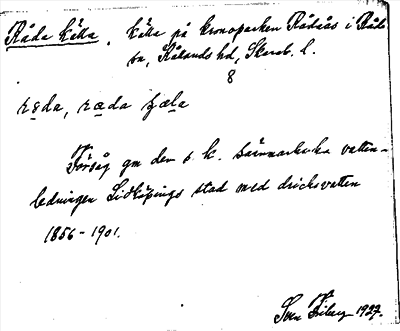 Råda källa, källa på kronoparken Rådaås i Råda
sn, Kålands hd, Skarab. l.
8
råda, rada ȷæla
Försåg gm den s. k. bärnmarkska vatten-
ledningen Lidköpings stad med dricksvatten
1856-1901.
Sven Friberg 1927.